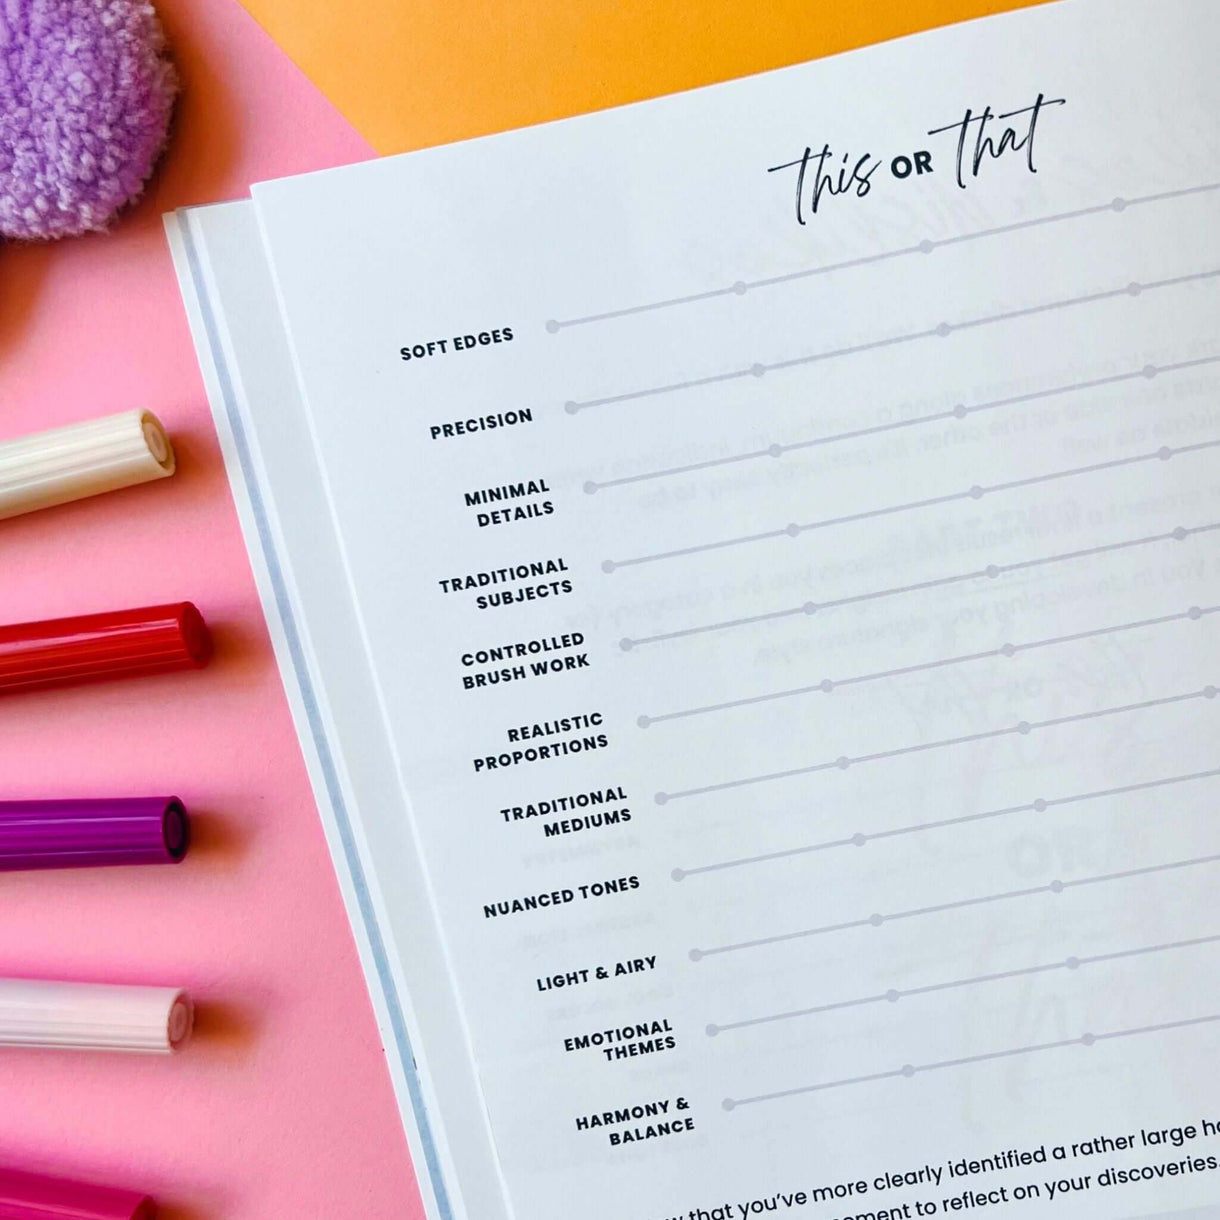 this OR that
SOFT EDGES
PRECISION
MINIMAL
DETAILS
TRADITIONAL
SUBJECTS
CONTROLLED
BRUSH WORK
REALISTIC
PROPORTIONS
TRADITIONAL
MEDIUMS
NUANCED TONES
LIGHT & AIRY
EMOTIONAL
THEMES
HARMONY &
BALANCE
that you've more clearly identified a rather large
to reflect on your discoveries.